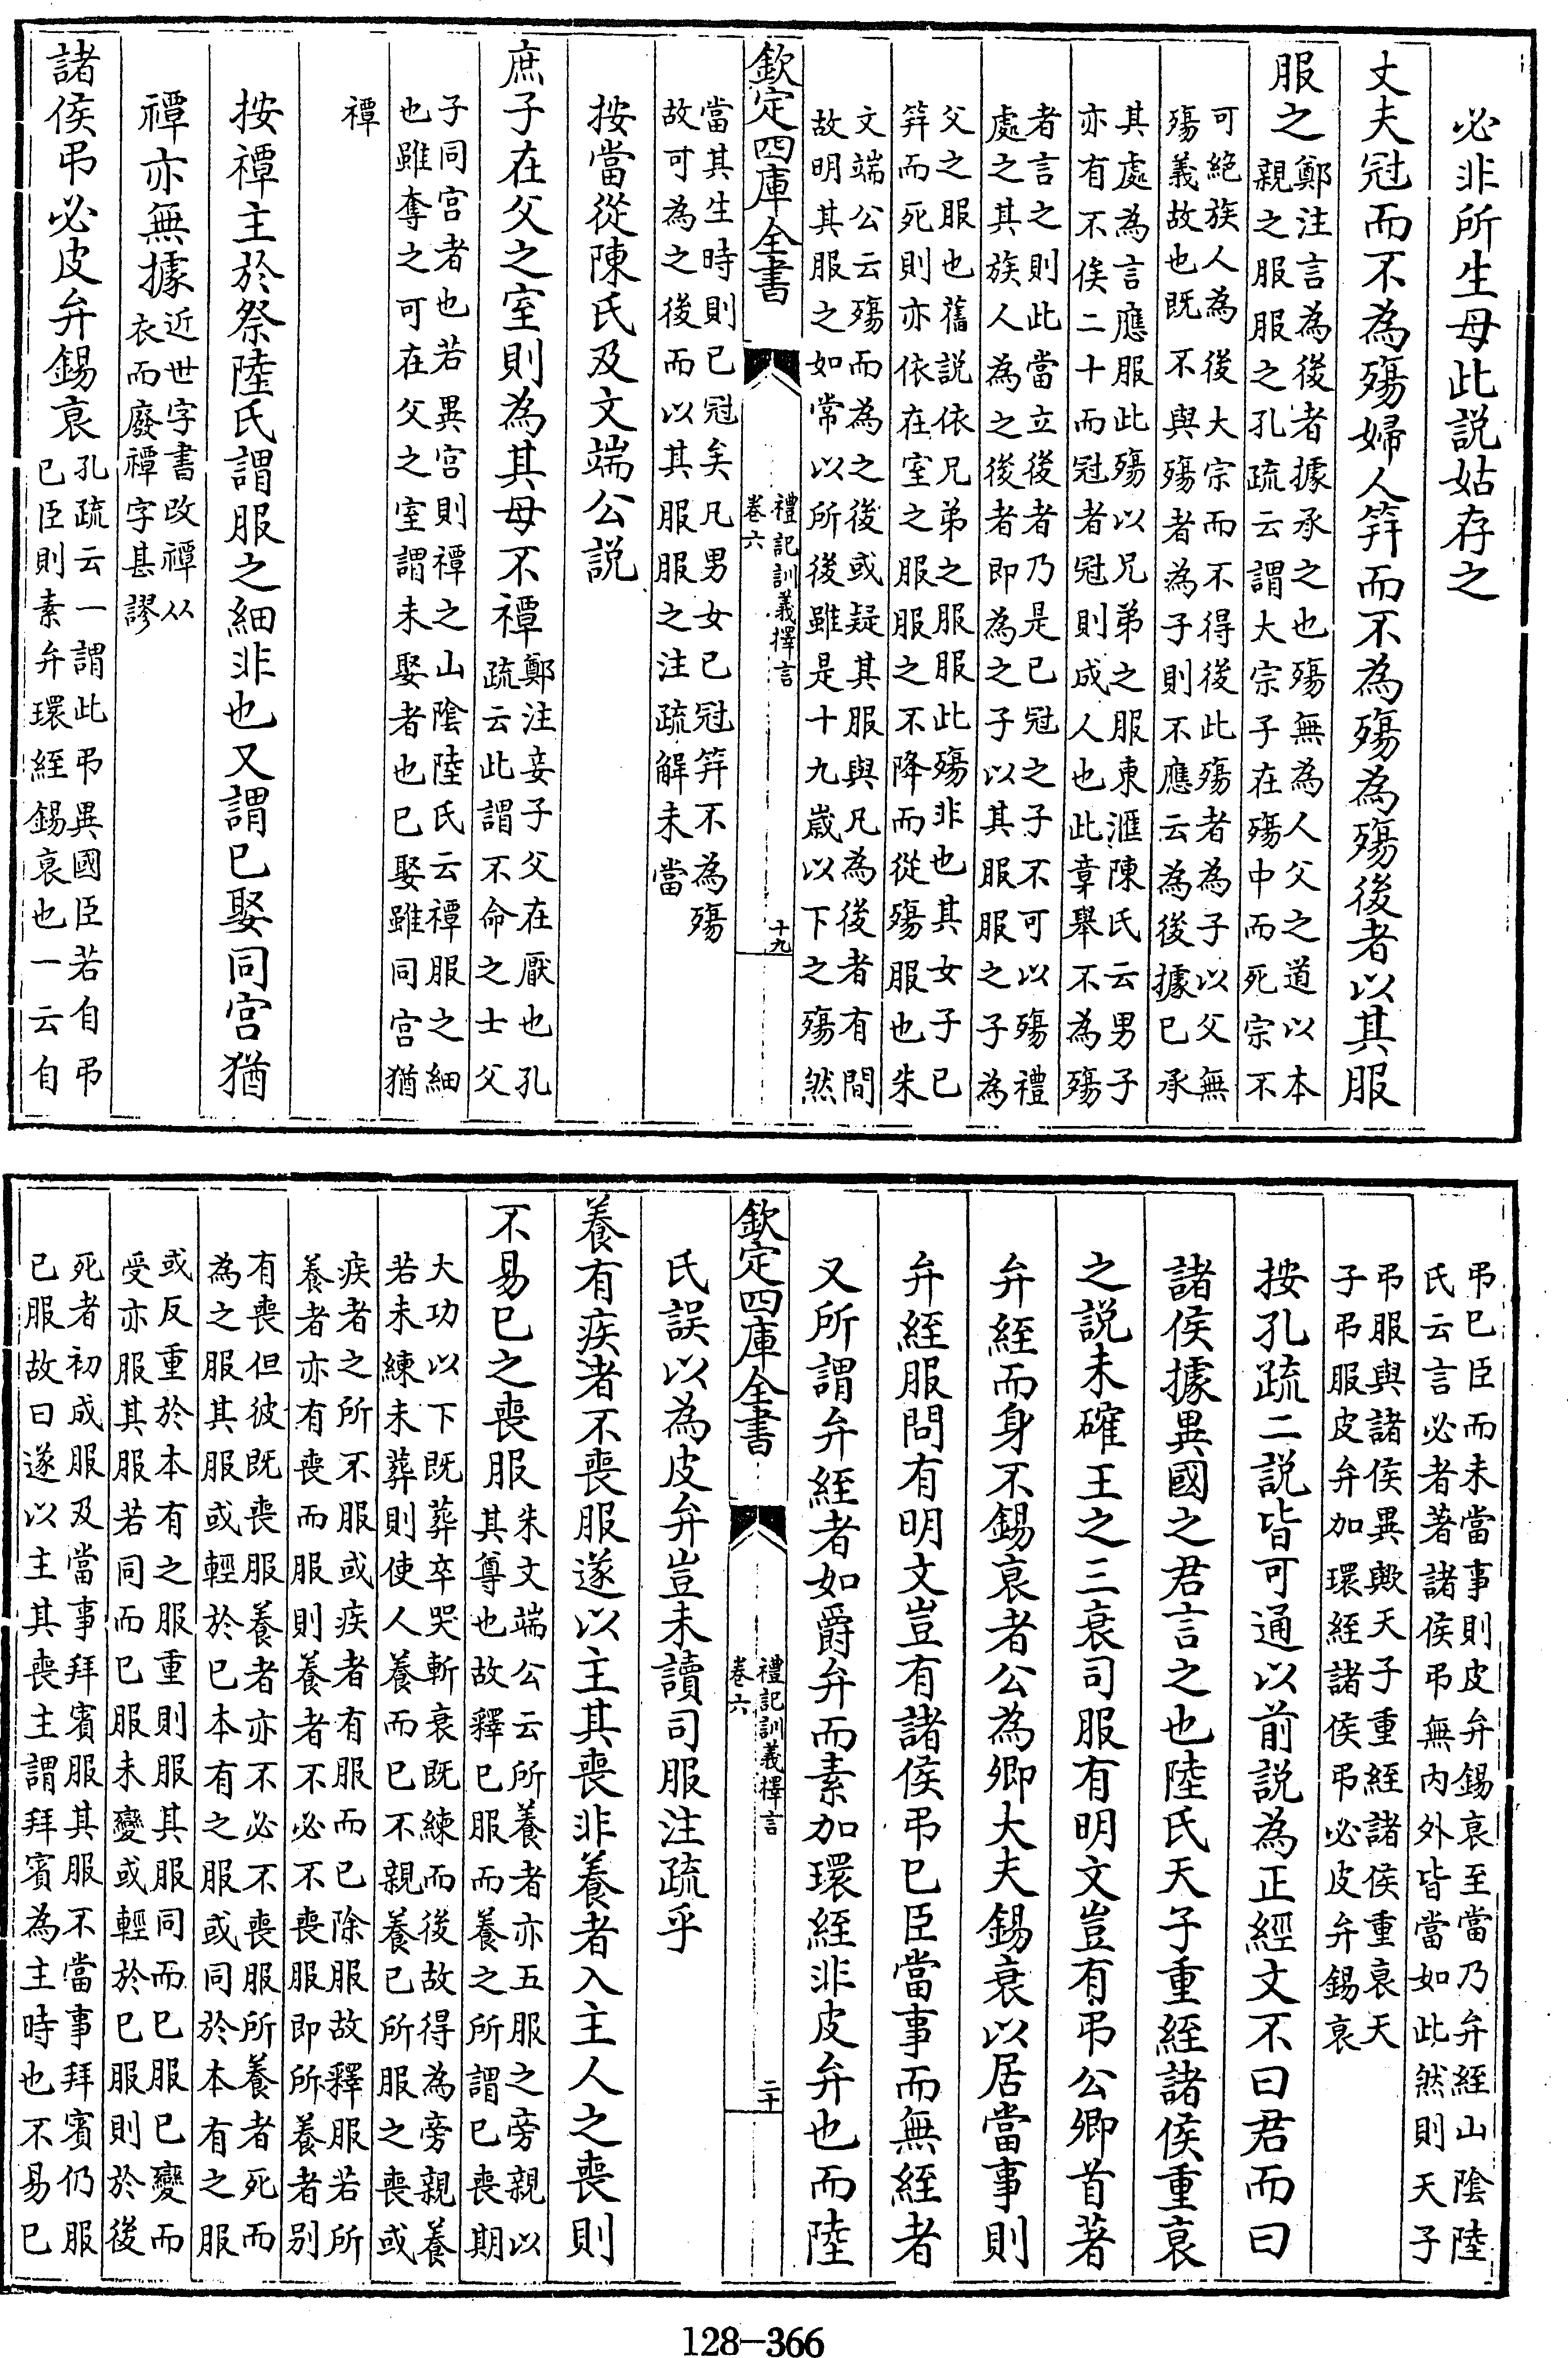 必非所生母此説姑存之
丈夫冠而不為殤婦人筓而不為殤為殤後者以其服
服之鄭注言為後者據承之也殤無為人父之道以本
親之服服之孔疏云謂大宗子在殤中而死宗不
可絶族人為後大宗而不得後此殤者為子以父無
殤義故也既不與殤者為子則不應云為後據已承
其處為言應服此殤以兄弟之服東滙陳氏云男子
亦有不俟二十而冠者冠則成人也此章舉不為殤
者言之則此當立後者乃是已冠之子不可以殤禮
處之其族人為之後者即為之子以其服服之子為
父之服也舊説依兄弟之服服此殤非也其女子已
筓而死則亦依在室之服服之不降而從殤服也朱
文端公云殤而為之後或疑其服與凡為後者有間
故明其服之如常以所後雖是十九歲以下之殤然
欽定四庫全書
禮記訓義擇言
卷六
十九
當其生時則已冠矣凡男女已冠筓不為殤
故可為之後而以其服服之注疏解未當
按當從陳氏及文端公説
庶子在父之室則為其母不禫鄭注妾子父在厭也孔
疏云此謂不命之士父
子同宫者也若異宫則禫之山陰陸氏云禫服之細
也雖奪之可在父之室謂未娶者也已娶雖同宫猶
禫
按禫主於祭陸氏謂服之細非也又謂已娶同宫猶
禫亦無據近世字書改禫从
衣而廢禫字甚謬
諸侯弔必皮弁錫衰孔疏云一謂此弔異國臣若自弔
已臣則素弁環絰錫衰也一云自
弔已臣而未當事則皮弁錫衰至當乃弁絰山陰陸
氏云言必者著諸侯弔無内外皆當如此然則天子
弔服與諸侯異歟天子重絰諸侯重衰天
子弔服皮弁加環絰諸侯弔必皮弁錫衰
按孔疏二説皆可通以前説為正經文不曰君而曰
諸侯據異國之君言之也陸氏天子重絰諸侯重衰
之説未確王之三衰司服有明文豈有弔公卿首著
弁絰而身不錫衰者公為卿大夫錫衰以居當事則
弁絰服問有明文豈有諸侯弔已臣當事而無絰者
又所謂弁絰者如爵弁而素加環絰非皮弁也而陸
欽定四庫全書
禮記訓義擇言
卷六
二十
氏誤以為皮弁豈未讀司服注疏乎
養有疾者不喪服遂以主其喪非養者入主人之喪則
不易已之喪服朱文端公云所養者亦五服之旁親以
其尊也故釋已服而養之所謂已喪期
大功以下既葬卒哭斬衰既練而後故得為旁親養
若未練未葬則使人養而已不親養已所服之喪或
疾者之所不服或疾者有服而已除服故釋服若所
養者亦有喪而服則養者不必不喪服即所養者别
有喪但彼既喪服養者亦不必不喪服所養者死而
為之服其服或輕於已本有之服或同於本有之服
或反重於本有之服重則服其服同而已服已變而
受亦服其服若同而已服未變或輕於已服則於後
死者初成服及當事拜賓服其服不當事拜賓仍服
已服故曰遂以主其喪主謂拜賓為主時也不易已
128-366